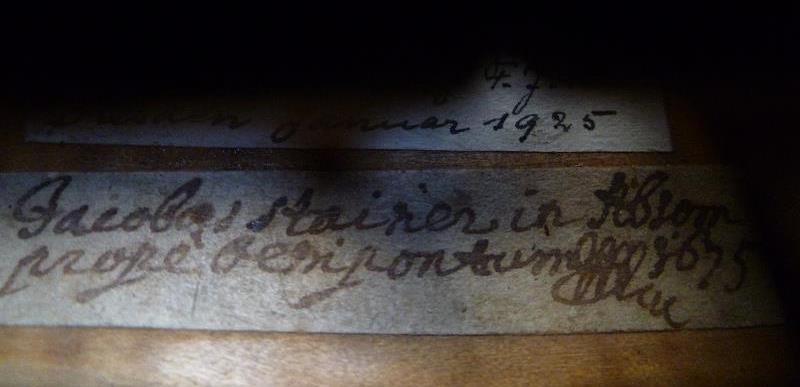 F. J.
Dresden Januar 1925
Jacobus Stainer in Absom
prope Oenipontum 1675